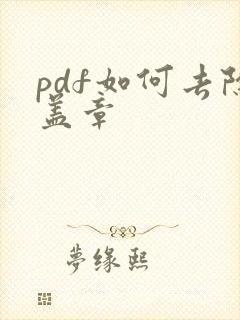 pdf如何去除
盖章
梦缘熙